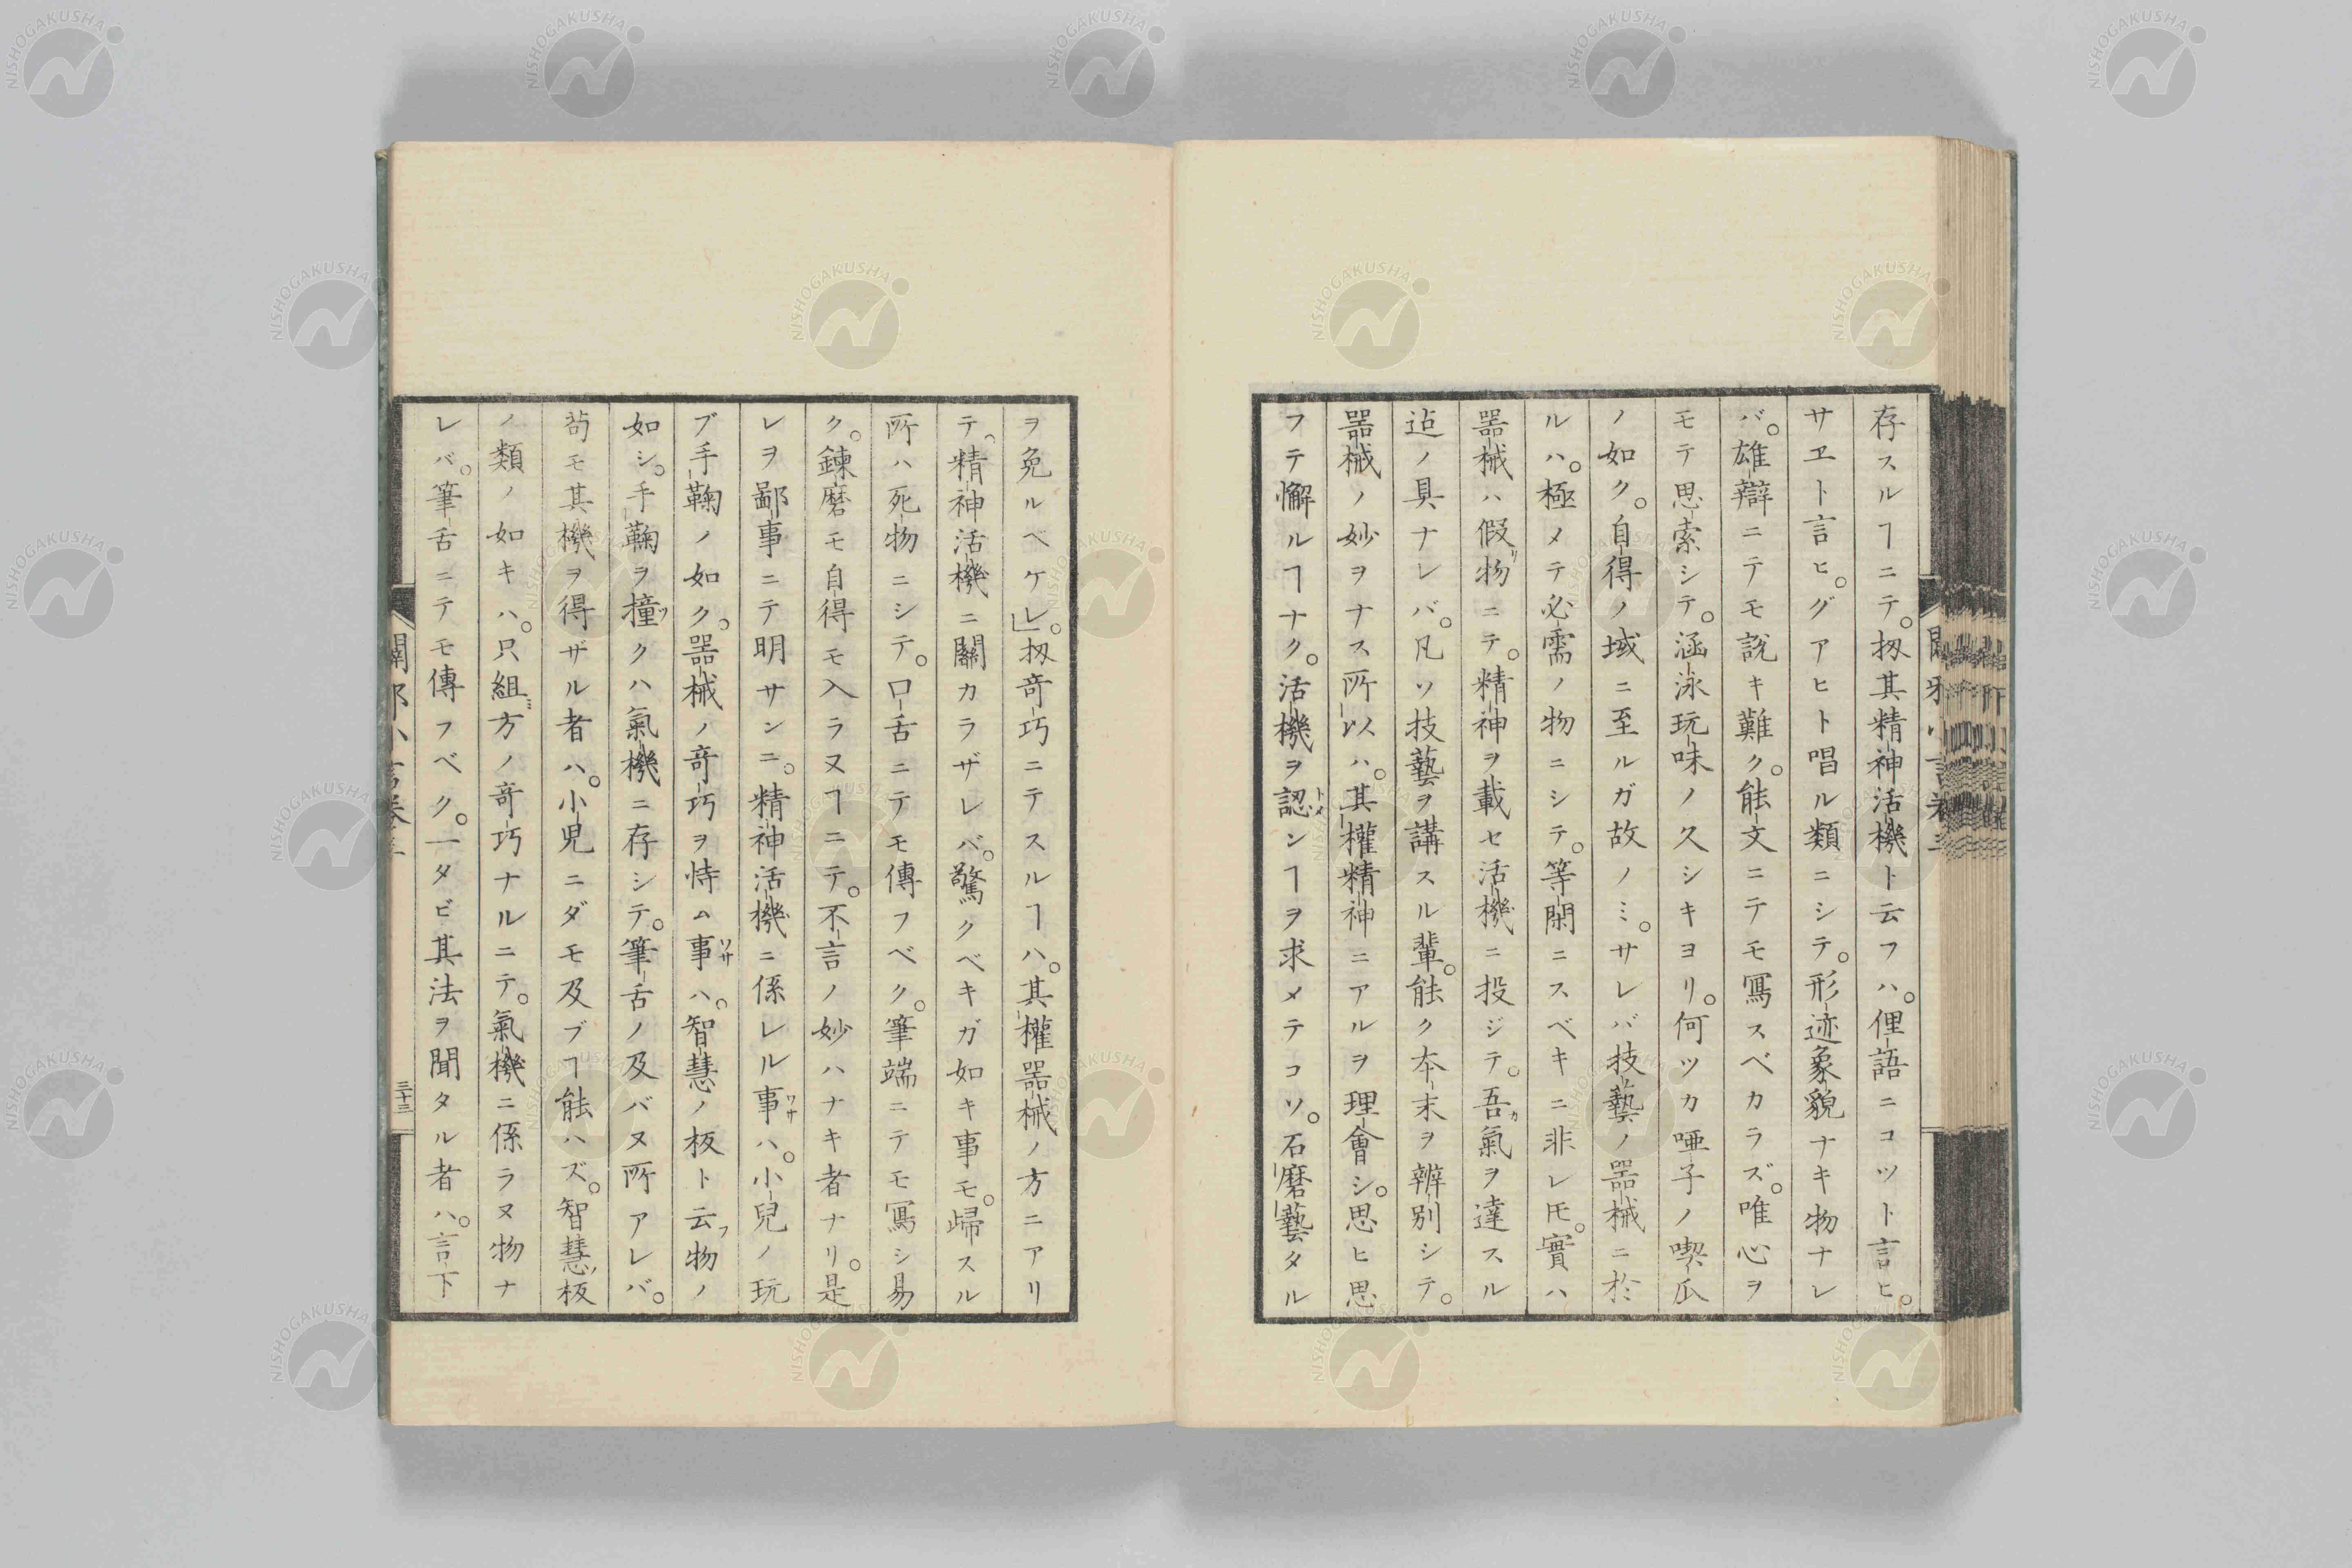 存スルヿニテ。扨其精神活機ト云フハ。俚語ニコツト言ヒ。
サヱト言ヒ。グアヒト唱ル類ニシテ。形迹象貌ナキ物ナレ
バ。雄辯ニテモ説キ難ク。能文ニテモ寫スベカラズ。唯心ヲ
モテ思索シテ。涵泳玩味ノ久シキヨリ。何ツカ唖子ノ喫瓜
ノ如ク。自得ノ域ニ至ルガ故ノミ。サレバ技藝ノ噐械ニ於
ルハ。極メテ必需ノ物ニシテ。等閑ニスベキニ非レ𪜈。實ハ
噐械ハ假リ物ニテ。精神ヲ載セ活機ニ投ジテ。吾カ氣ヲ達スル
迠ノ具ナレバ。凡ソ技藝ヲ講スル輩。能ク夲末ヲ辨別シテ。
噐械ノ妙ヲナス所以ハ。其權精神ニアルヲ理會シ。思ヒ思
フテ懈ルヿナク。活機ヲ認トメンヿヲ求メテコソ。石磨藝タル
ヲ免ルベケレ」。扨竒巧ニテスルヿハ。其權噐械ノ方ニアリ
テ。精神活機ニ關カラザレバ。驚クベキガ如キ事モ。歸スル
所ハ死物ニシテ。口舌ニテモ傳フベク。筆端ニテモ寫シ易
ク。鍊磨モ自得モ入ラヌヿニテ。不言ノ妙ハナキ者ナリ。是
レヲ鄙事ニテ明サンニ。精神活機ニ係レル事ワサハ。小兒ノ玩
ブ手鞠ノ如ク。噐械ノ竒巧ヲ恃ム事ワサハ。智慧ノ板ト云フ物ノ
如シ。手鞠ヲ撞ツクハ氣機ニ存シテ。筆舌ノ及バヌ所アレバ。
苟モ其機ヲ得ザル者ハ。小児ニダモ及ブヿ能ハズ。智慧ノ板
ノ類ノ如キハ。只組ミ方ノ竒巧ナルニテ。氣機ニ係ラヌ物ナ
レバ。筆舌ニテモ傳フベク。一タビ其法ヲ聞タル者ハ。言下
三十三